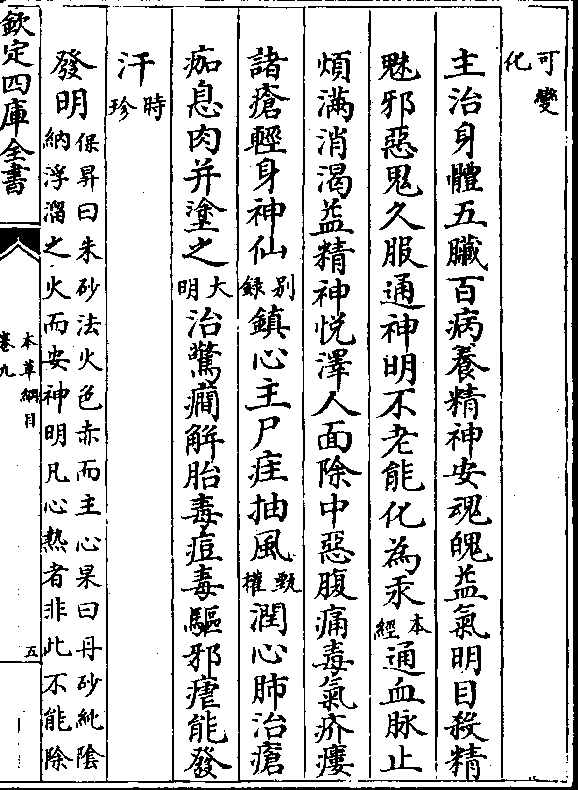 可變
化
主治身體五臟百病養精神安魂魄益氣明目殺精
魅邪惡鬼久服通神明不老能化為汞本經通血脉止
煩滿消渴益精神悅澤人面除中惡腹痛毒氣疥瘻
諸瘡輕身神仙别録鎮心主尸疰抽風甄權潤心肺治瘡
痂息肉并塗之大明治驚癎解胎毒痘毒驅邪瘧能發
汗時珍
發明保昇曰朱砂法火色赤而主心杲曰丹砂純陰
納浮溜之火而安神明凡心熱者非此不能除
欽定四庫全書
本草綱目
卷九
五